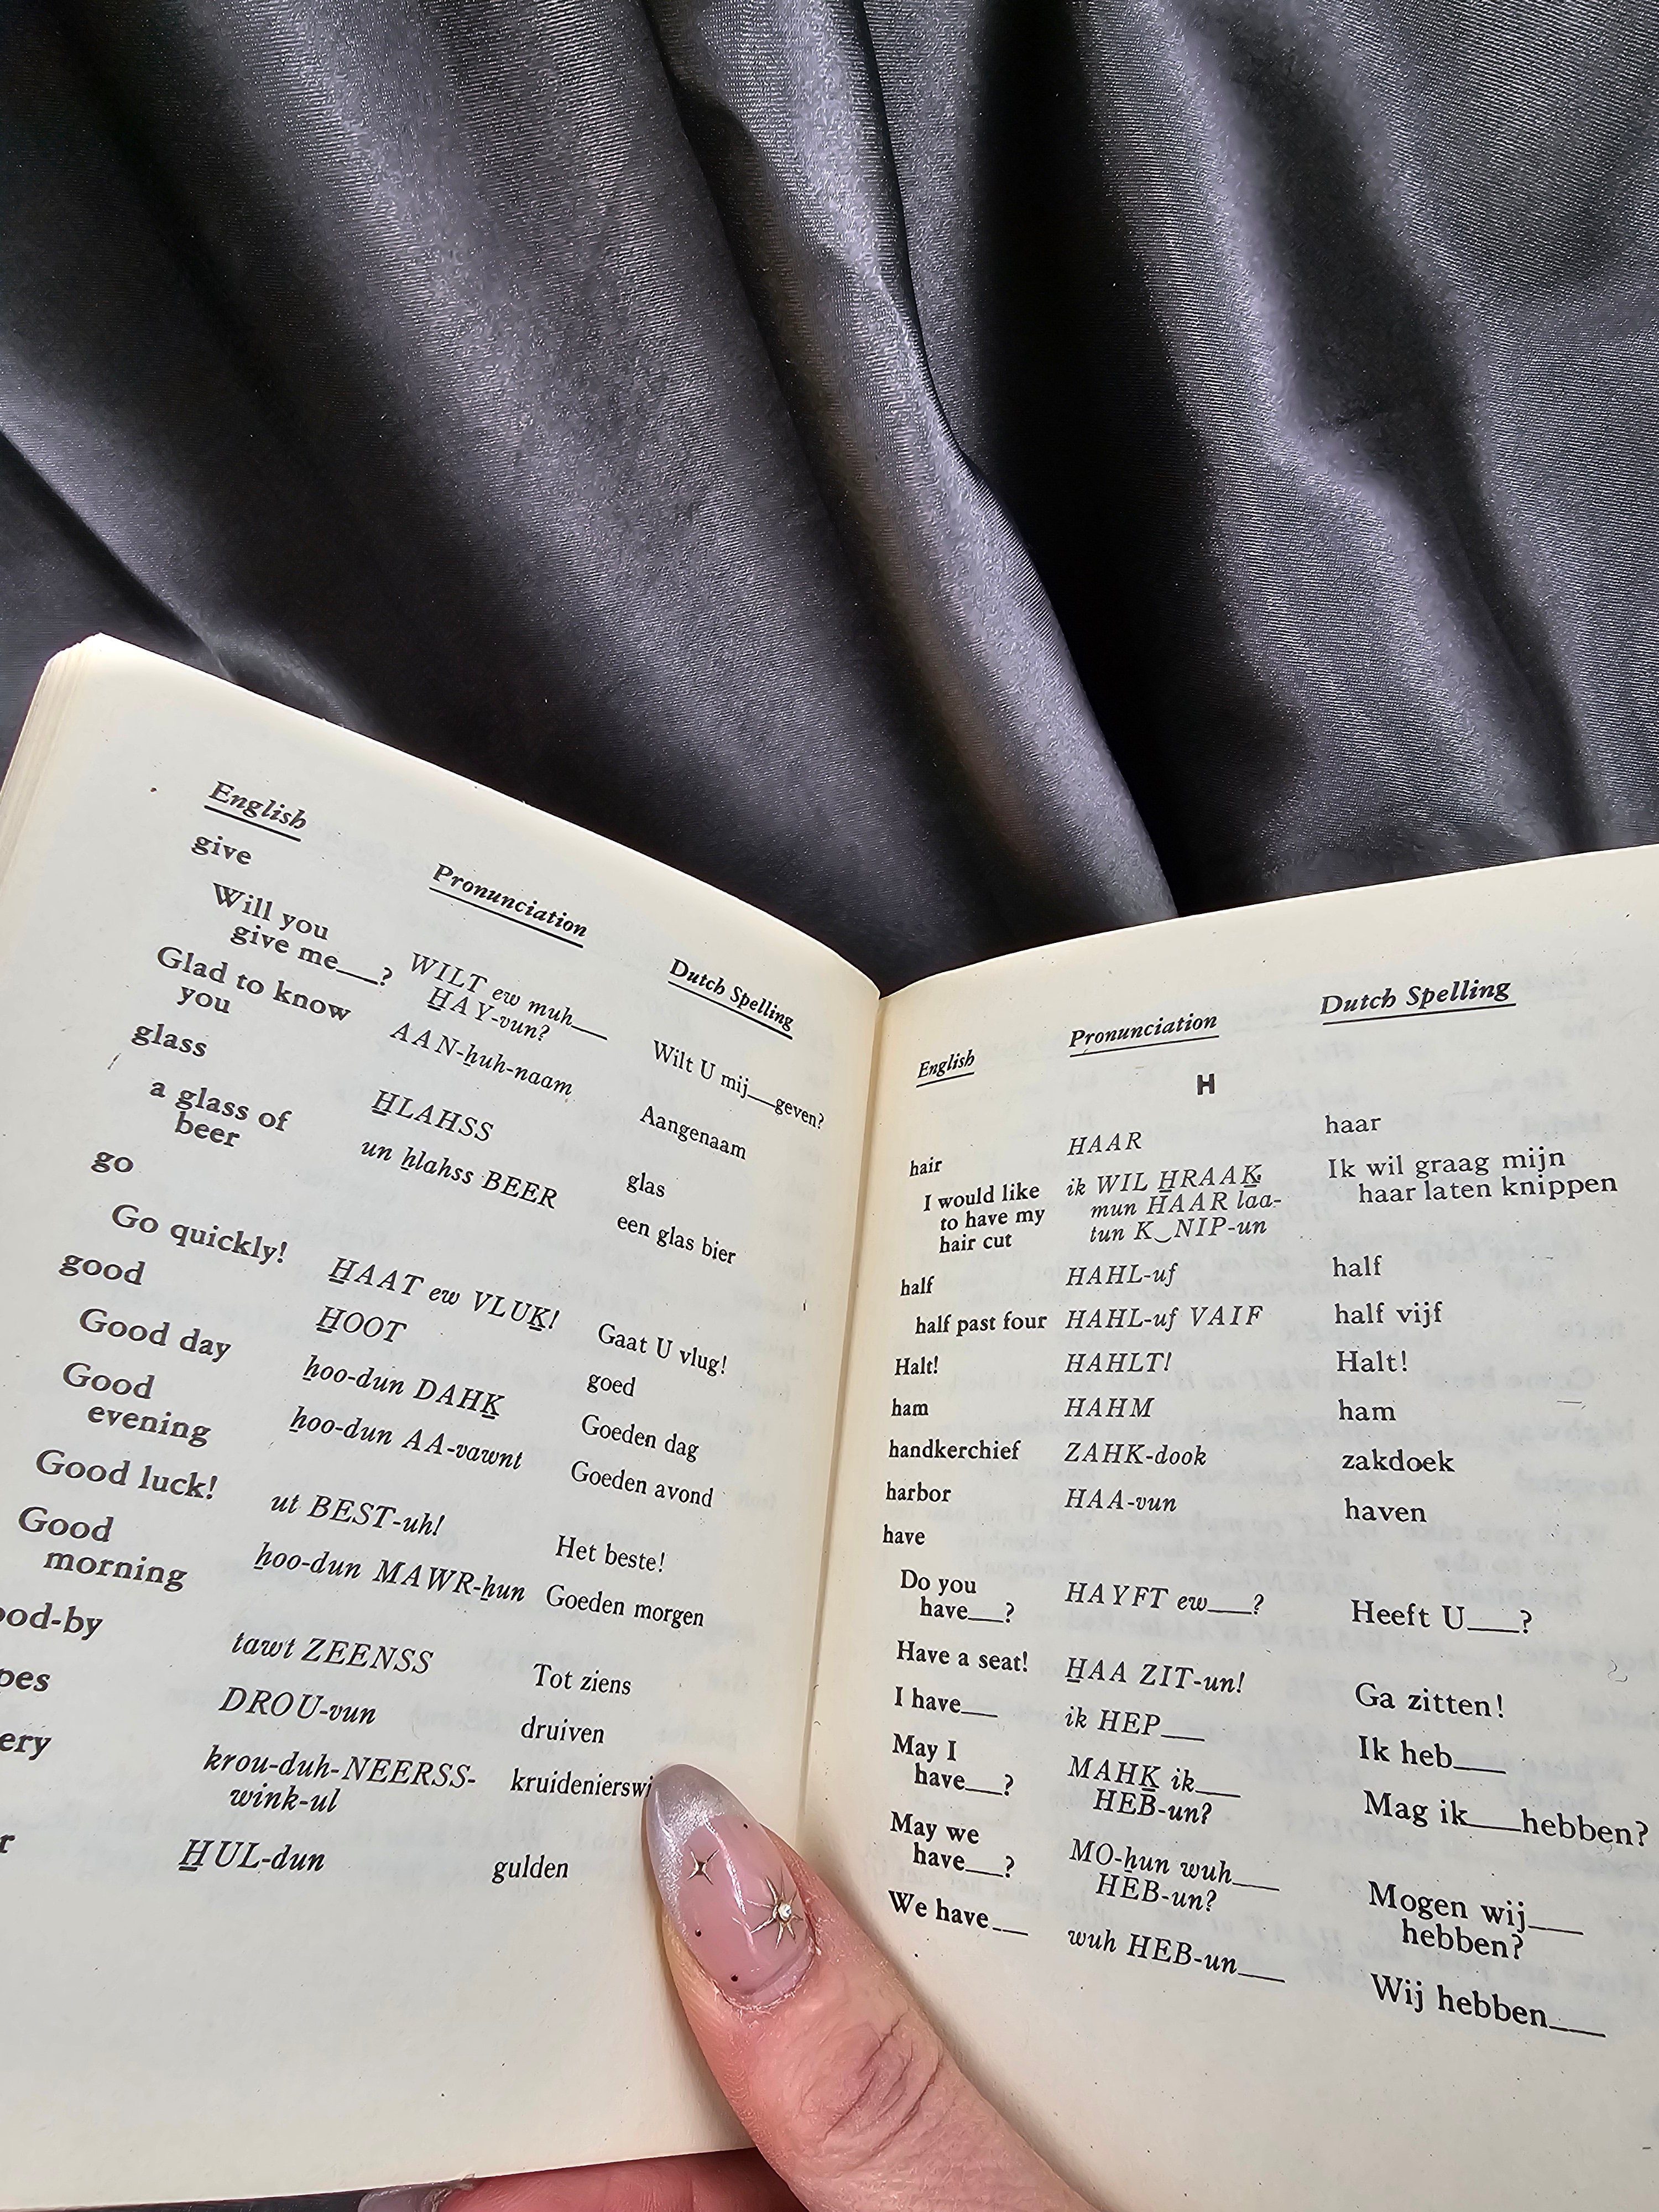 English Pronunciation Dutch Spelling
give
Will you
give me___? WILT ew muh___ Wilt U mij___geven?
HAY-vun?
Glad to know AAN-huh-naam Aangenaam
you
glass HLAHSS glas
a glass of un hlahss BEER een glas bier
beer
go
Go quickly! HAAT ew VLUK! Gaat U vlug!
good HOOT goed
Good day hoo-dun DAHK Goeden dag
Good hoo-dun AA-vawnt Goeden avond
evening
Good luck! ut BEST-uh! Het beste!
Good hoo-dun MAWR-hun Goeden morgen
morning
ood-by tawt ZEENSS Tot ziens
pes DROU-vun druiven
ery krou-duh-NEERSS- kruidenierswi
wink-ul
r HUL-dun gulden
English Pronunciation Dutch Spelling
H
hair HAAR haar
I would like ik WIL HRAAK Ik wil graag mijn
to have my mun HAAR laa- haar laten knippen
hair cut tun K‿NIP-un
half HAHL-uf half
half past four HAHL-uf VAIF half vijf
Halt! HAHLT! Halt!
ham HAHM ham
handkerchief ZAHK-dook zakdoek
harbor HAA-vun haven
have
Do you HAYFT ew___? Heeft U___?
have___?
Have a seat! HAA ZIT-un! Ga zitten!
I have___ ik HEP___ Ik heb___
May I MAHK ik___ Mag ik___hebben?
have___? HEB-un?
May we MO-hun wuh___ Mogen wij___
have___? HEB-un? hebben?
We have___ wuh HEB-un___ Wij hebben___